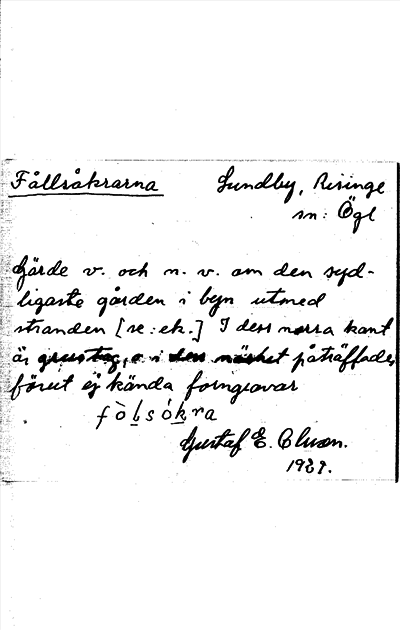 Fållsåkrarna
Sundby, Risinge
sn: Ögl
Gärde v. och n. v. om den syd-
ligaste gården i byn utmed
stranden [se: ek.] I dess norra kant
är grustag, o. i påträffades
förut ej kända forngravar
Gustaf E. Olsson.